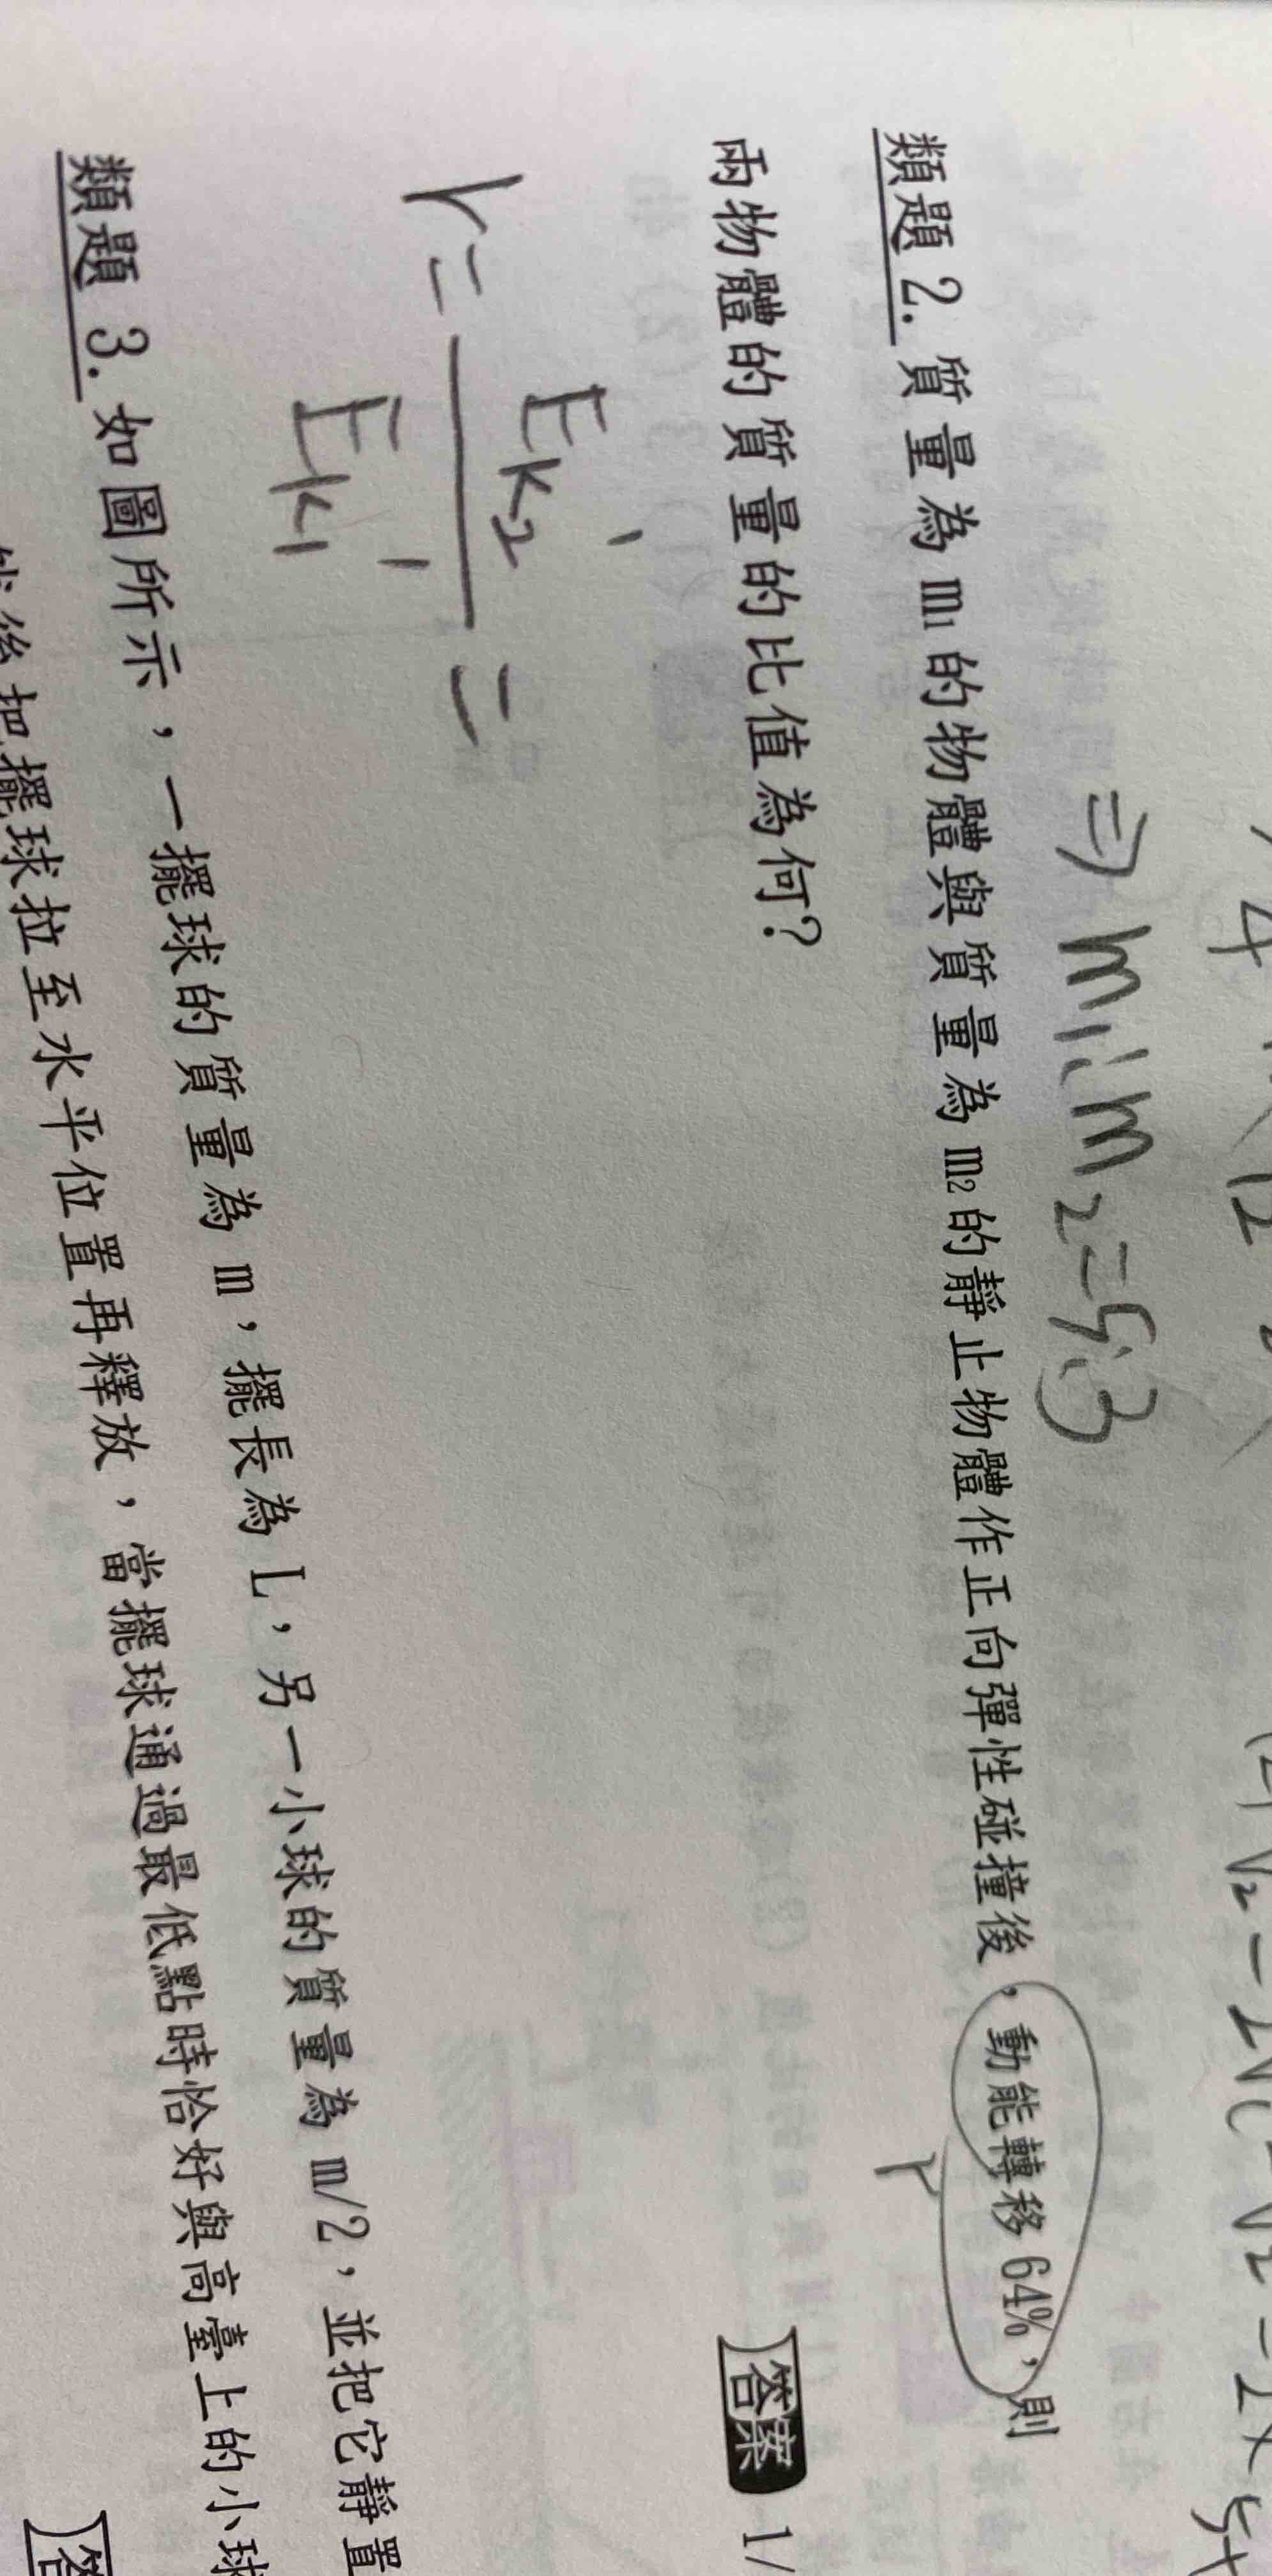 ⇒ m₁:m₂=5:3
類題 2. 質量為 m₁ 的物體與質量為 m₂ 的靜止物體作正向彈性碰撞後，動能轉移 64%，則
r
兩物體的質量的比值為何？
答案 1/
r = Ek₂' / Ek₁' =
類題 3. 如圖所示，一擺球的質量為 m，擺長為 L，另一小球的質量為 m/2，並把它靜置
後把擺球拉至水平位置再釋放，當擺球通過最低點時恰好與高臺上的小球